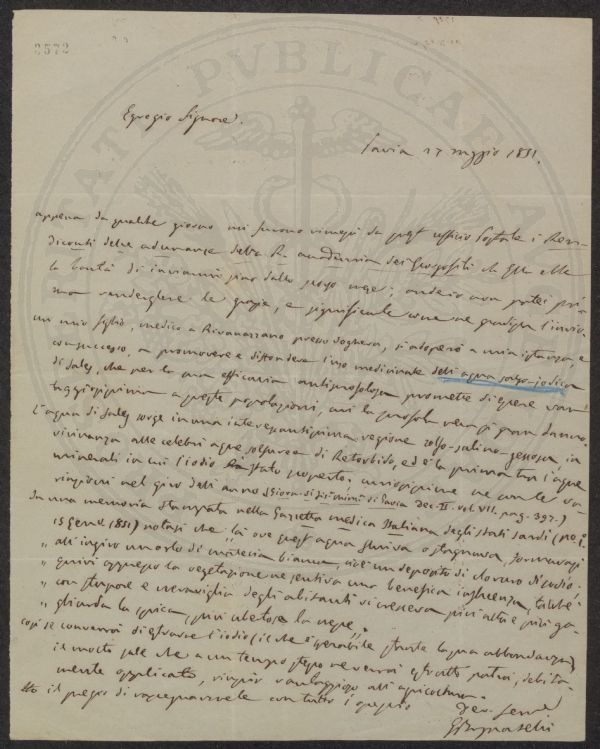 2572
PVBLICAE
Egregio Signore.
Pavia 17 maggio 1851.
appena da qualche giorno mi furono rimessi da quest' ufficio Postale i Ren-
diconti delle adunanze della R. accademia dei Georgofili ch Ella ebbe
la bontà di inviarmi sino dallo mese; onde io non potei pri-
ma renderglene le grazie, e significarle come ne gradissi l'invio.
un mio figlio, medico a Rivanazzano presso Voghera, si adoperò a mia istanza, e
con successo, a promovere e diffondere l'uso medicinale dell' acqua solfo-jodica
di Sales, che per la sua efficacia antiscrofolosa promette di essere van-
taggiosissima a queste popolazioni, cui la scrofola reca gran danno.
L'acqua di Sales sorge in una interessantissima regione solfo-salino-gessosa in
vicinanza alle celebri acque solfuree di Retorbido, ed è la prima tra l'acque
minerali in cui l'iodio sia stato scoperto;
riazioni nel giro dell' anno (Giorn. di fis. chim. di Pavia Dec. II. vol. VII. pag. 397.)
In una memoria stampata nella Gazzetta medica Italiana degli stati sardi (no. 2.
13 Genn. 1851) notasi che "là ove quest' acqua fluiva o stagnava, formavasi
" all' ingiro un orlo di materia bianca, cioè un deposito di cloruro di sodio:
" quivi appresso la vegetazione ne sentiva una benefica influenza, talchè
" con stupore e meraviglia degli abitanti vi cresceva più alta e più ga-
" gliarda la spica, più ubertosa la messe."
così se converrà di estrarre l'iodio (il che è sperabile stante la sua abbondanza)
il molto sale che a un tempo stesso ne verrà estratto potrà, debita-
mente applicato, vantaggioso all' agricoltura.
Ho il pregio di rassegnarmele con tutto l'ossequio
Dev. Serv.
G Brugnatelli